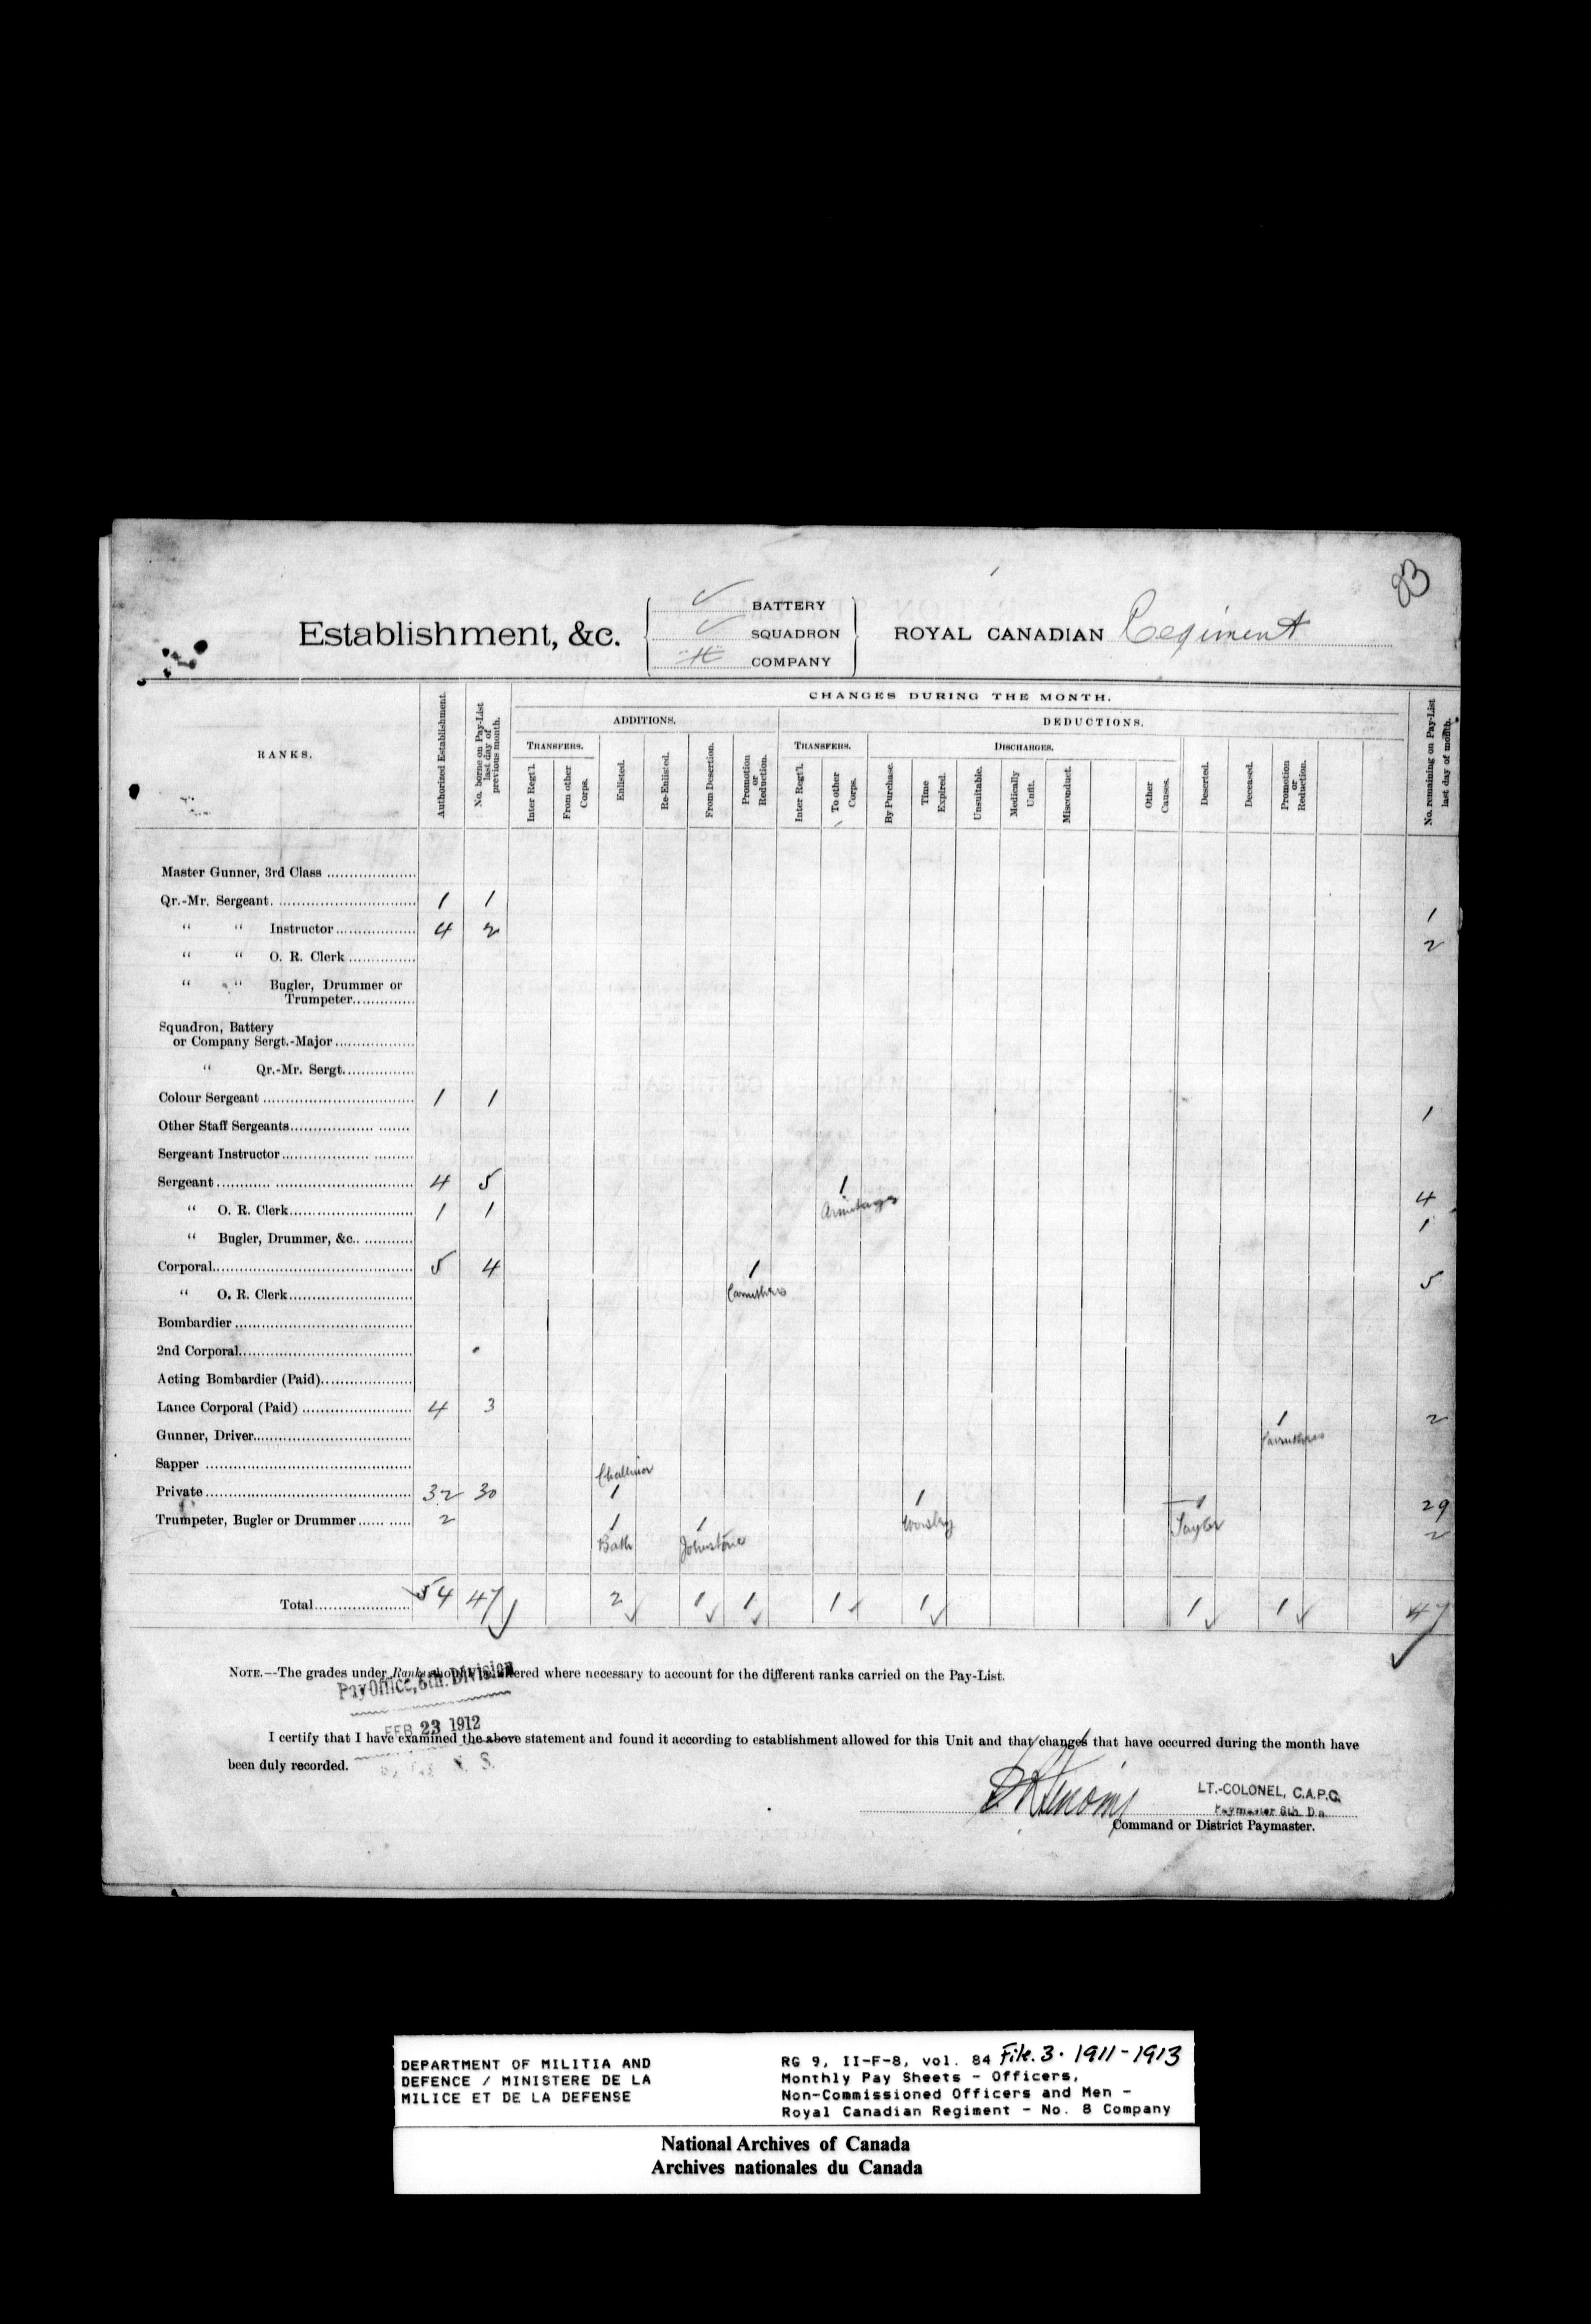 83
BATTERY
Establishment, &c. SQUADRON ROYAL CANADIAN Regiment
H COMPANY
CHANGES DURING THE MONTH.
ADDITIONS. DEDUCTIONS.
RANKS. Authorized Establishment. No. borne on Pay-List last day of previous month. No. remaining on Pay-List last day of month.
TRANSFERS. TRANSFERS. DISCHARGES.
Inter Regt'l. From other Corps. Enlisted. Re-Enlisted. From Desertion. Promotion or Reduction. Inter Regt'l. To other Corps. By Purchase. Time Expired. Unsuitable. Medically Unfit. Misconduct. Other Causes. Deserted. Deceased. Promotion or Reduction.
Master Gunner, 3rd Class
Qr.-Mr. Sergeant 1 1 1
" " Instructor 4 2 2
" " O. R. Clerk
" " Bugler, Drummer or
Trumpeter
Squadron, Battery
or Company Sergt.-Major
" Qr.-Mr. Sergt.
Colour Sergeant 1 1 1
Other Staff Sergeants
Sergeant Instructor
Sergeant 4 5 1 4
Armitage
" O. R. Clerk 1 1 1
" Bugler, Drummer, &c.
Corporal 5 4 1 5
Carruthers
" O. R. Clerk
Bombardier
2nd Corporal
Acting Bombardier (Paid)
Lance Corporal (Paid) 4 3 1 2
Carruthers
Gunner, Driver
Sapper
Challinor
Private 32 30 1 1 1 29
Worsley Taylor
Trumpeter, Bugler or Drummer 2 1 1 2
Bath Johnstone
Total 54 47 2 1 1 1 1 1 1 47
NOTE.—The grades under Ranks should be altered where necessary to account for the different ranks carried on the Pay-List.
Pay Office, 6th. Division
FEB 23 1912
N. S.
I certify that I have examined the above statement and found it according to establishment allowed for this Unit and that changes that have occurred during the month have
been duly recorded.
LT.-COLONEL, C.A.P.C.
Paymaster 6th Dn.
Command or District Paymaster.
DEPARTMENT OF MILITIA AND
DEFENCE / MINISTERE DE LA
MILICE ET DE LA DEFENSE
RG 9, II-F-8, vol. 84 File. 3. 1911-1913
Monthly Pay Sheets - Officers,
Non-Commissioned Officers and Men -
Royal Canadian Regiment - No. 8 Company
National Archives of Canada
Archives nationales du Canada